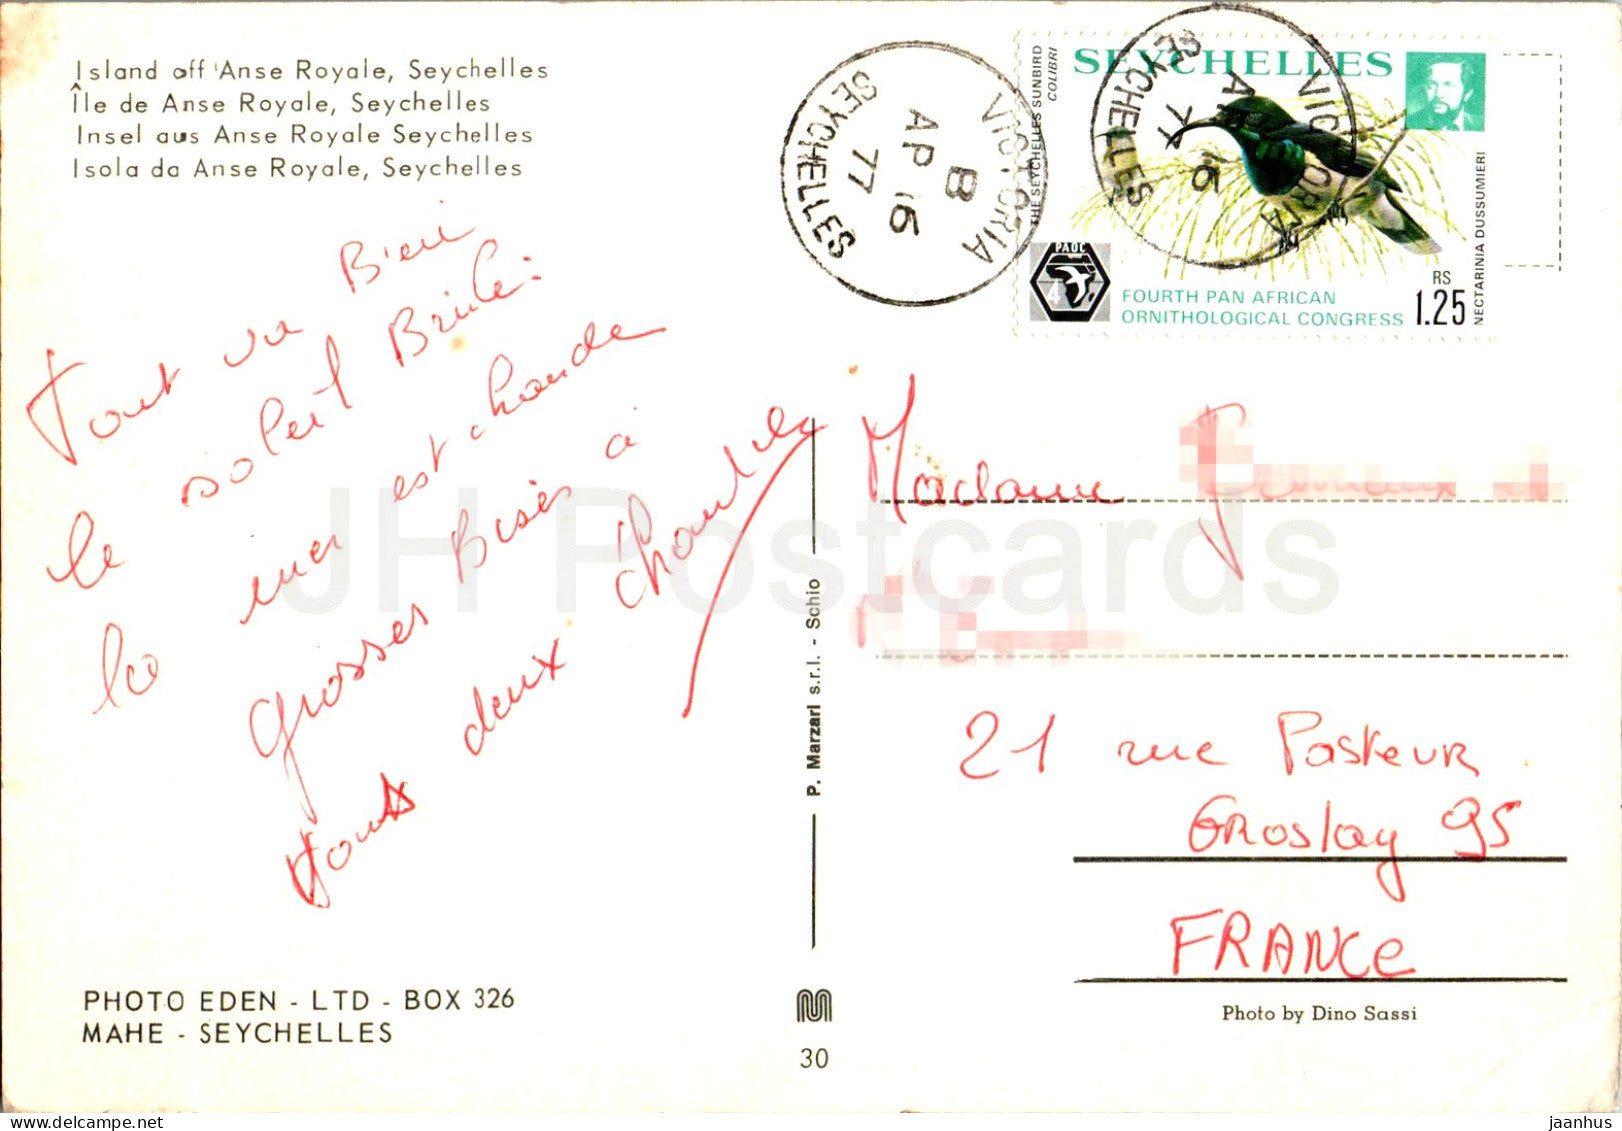 Island off 'Anse Royale, Seychelles
Île de Anse Royale, Seychelles
Insel aus Anse Royale Seychelles
Isola da Anse Royale, Seychelles
VICTORIA
B
AP 16
77
SEYCHELLES
VICTORIA
AP 16
77
SEYCHELLES
SEYCHELLES
THE SEYCHELLES SUNBIRD
COLIBRI
NECTARINIA DUSSUMIERI
PAOC
4
FOURTH PAN AFRICAN
ORNITHOLOGICAL CONGRESS
RS
1.25
Tout va Bien
le soleil Brûle.
la mer est chaude
Grosses Bises à
vous deux
Madame
21 rue Pasteur
Groslay 95
FRANCE
P. Marzari s.r.l. - Schio
PHOTO EDEN - LTD - BOX 326
MAHE - SEYCHELLES
30
Photo by Dino Sassi
JH Postcards
jaanhus @ delcampe.net